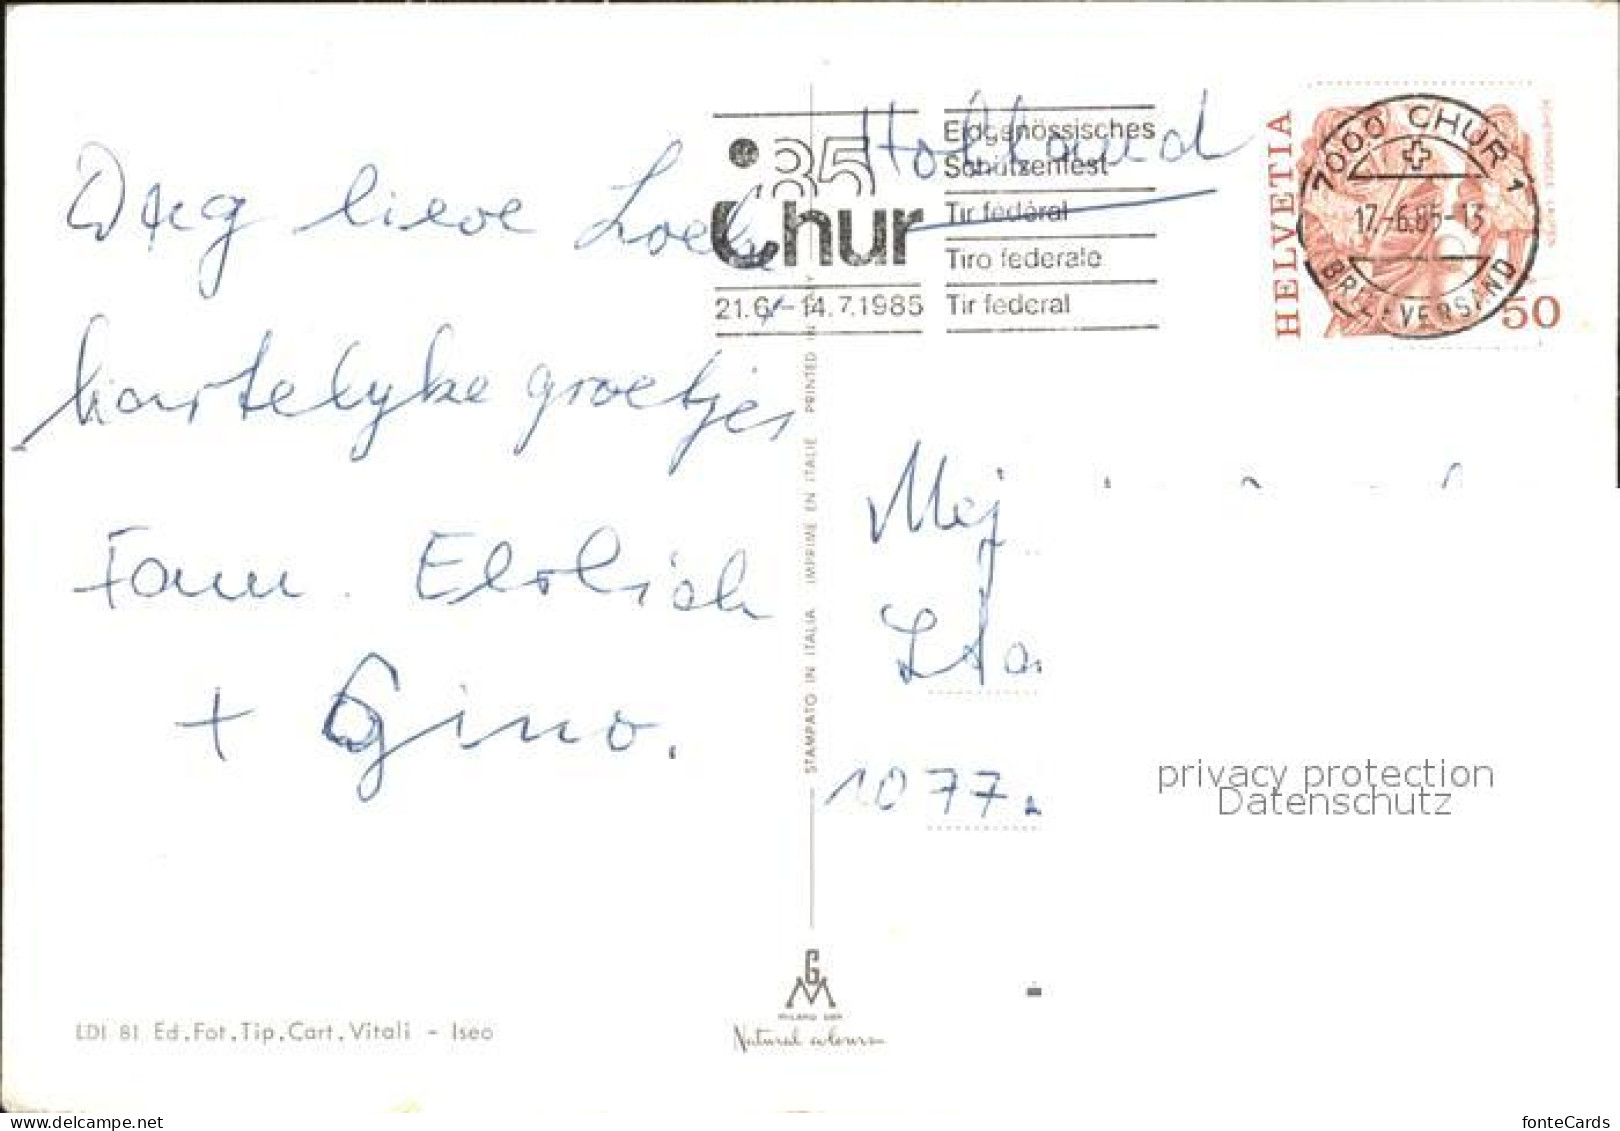 Dag lieve Loek
hartelyke groetjes
Fam. Ehrlich
+ Gino.
LDI 81 Ed.Fot.Tip.Cart.Vitali - Iseo
STAMPATO IN ITALIA IMPRIME EN ITALIE PRINTED IN ITALY
GM
MILANO
Natural colours
'85
Chur
21.6.-14.7.1985
Eidgenössisches
Schützenfest
Tir fédéral
Tiro federale
Tir federal
Holland
HELVETIA
50
7000 CHUR 1
17.-6.85-13
BRIEFVERSAND
Mej
1077
privacy protection
Datenschutz
fonteCards